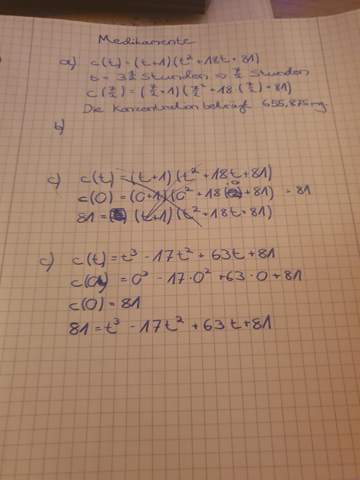 Medikamente
a) c(t) = (t+1)(t²+18t+81)
b = 3 ½ Stunden => 7/2 Stunden
c(7/2) = (7/2+1)(7/2²+18(7/2)+81)
Die Konzentration beträgt 655,875 mg.
b)
c) c(t) = (t+1)(t²+18t+81)
c(0) = (0+1)(0²+18(0)+81) = 81
81 = (t+1)(t²+18t+81)
c) c(t) = t³ - 17t² + 63t + 81
c(0) = 0³ - 17·0² + 63·0 + 81
c(0) = 81
81 = t³ - 17t² + 63t + 81